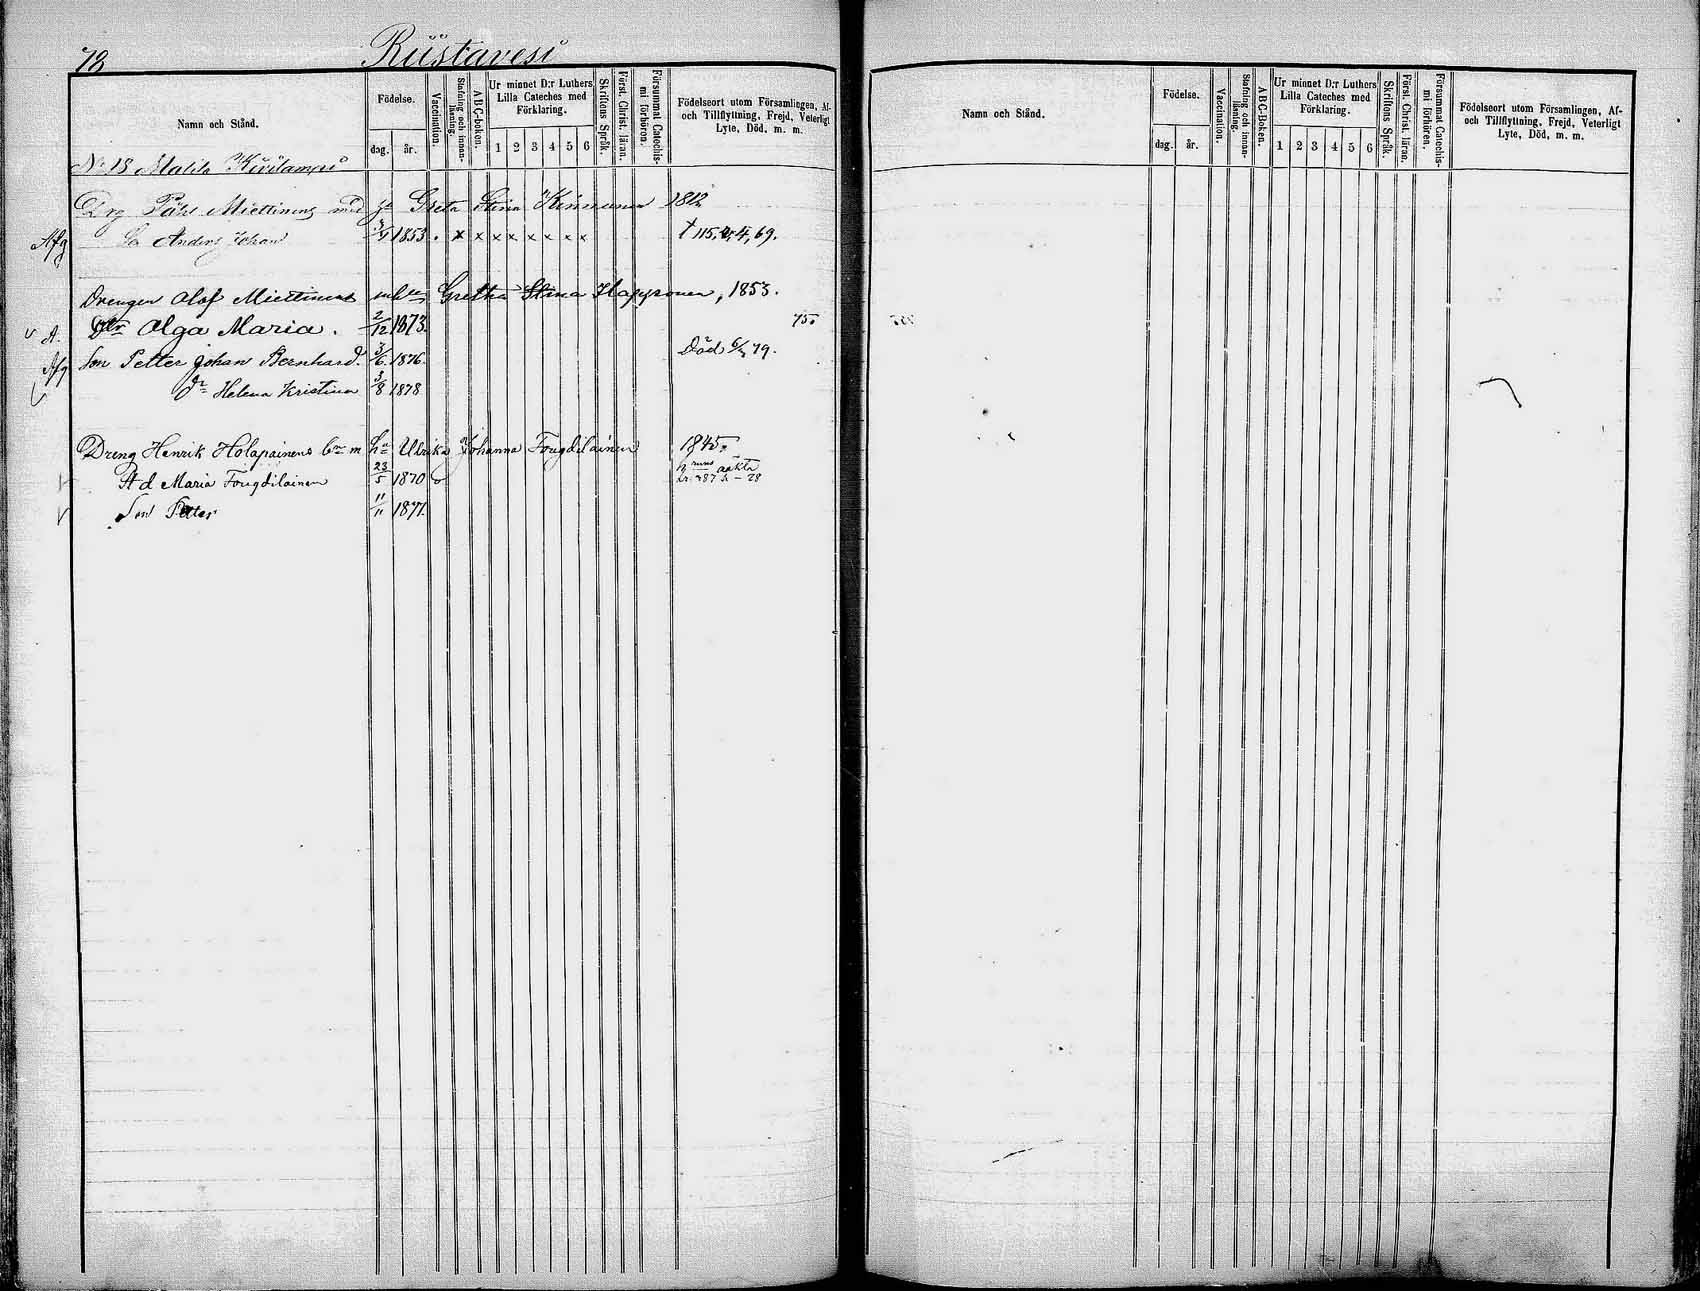 78 Riistavesi
Namn och Stånd.
Födelse.
dag. år.
Vaccination.
Stafning och innanläsning.
ABC-boken.
Ur minnet D:r Luthers Lilla Cateches med Förklaring.
1 2 3 4 5 6
Skriftens Språk.
Först. Christ. läran.
Försummat Catechismi förhören.
Födelseort utom Församlingen, Af- och Tillflyttning, Frejd, Veterligt Lyte, Död, m. m.
No 18 Malila Kiiilampi
Drg Påhl Miettinens med Greta Stina Kinnunen 1812
Afg So Anders Johan 3/9 1853 . x x x x x x x x † 115, 4, 69.
Drengen Olof Miettinens Gretha Stina Happonen, 1853.
A. Dtr Olga Maria. 2/12 1873. 75.
Afg Son Petter Johan Bernhard. 3/6 1876. Död 6/ 79.
Dr Helena Kristina 3/8 1878
Dreng Henrik Holapainens Ulrika Johanna Fougdilainen 1845.
Maria Fougdilainen 23/5 1870
Son Petter 11/11 1877.
Namn och Stånd.
Födelse.
dag. år.
Vaccination.
Stafning och innanläsning.
ABC-Boken.
Ur minnet D:r Luthers Lilla Cateches med Förklaring.
1 2 3 4 5 6
Skriftens Språk.
Först. Christ. läran.
Försummat Catechismi förhören.
Födelseort utom Församlingen, Af- och Tillflyttning, Frejd, Veterligt Lyte, Död, m. m.